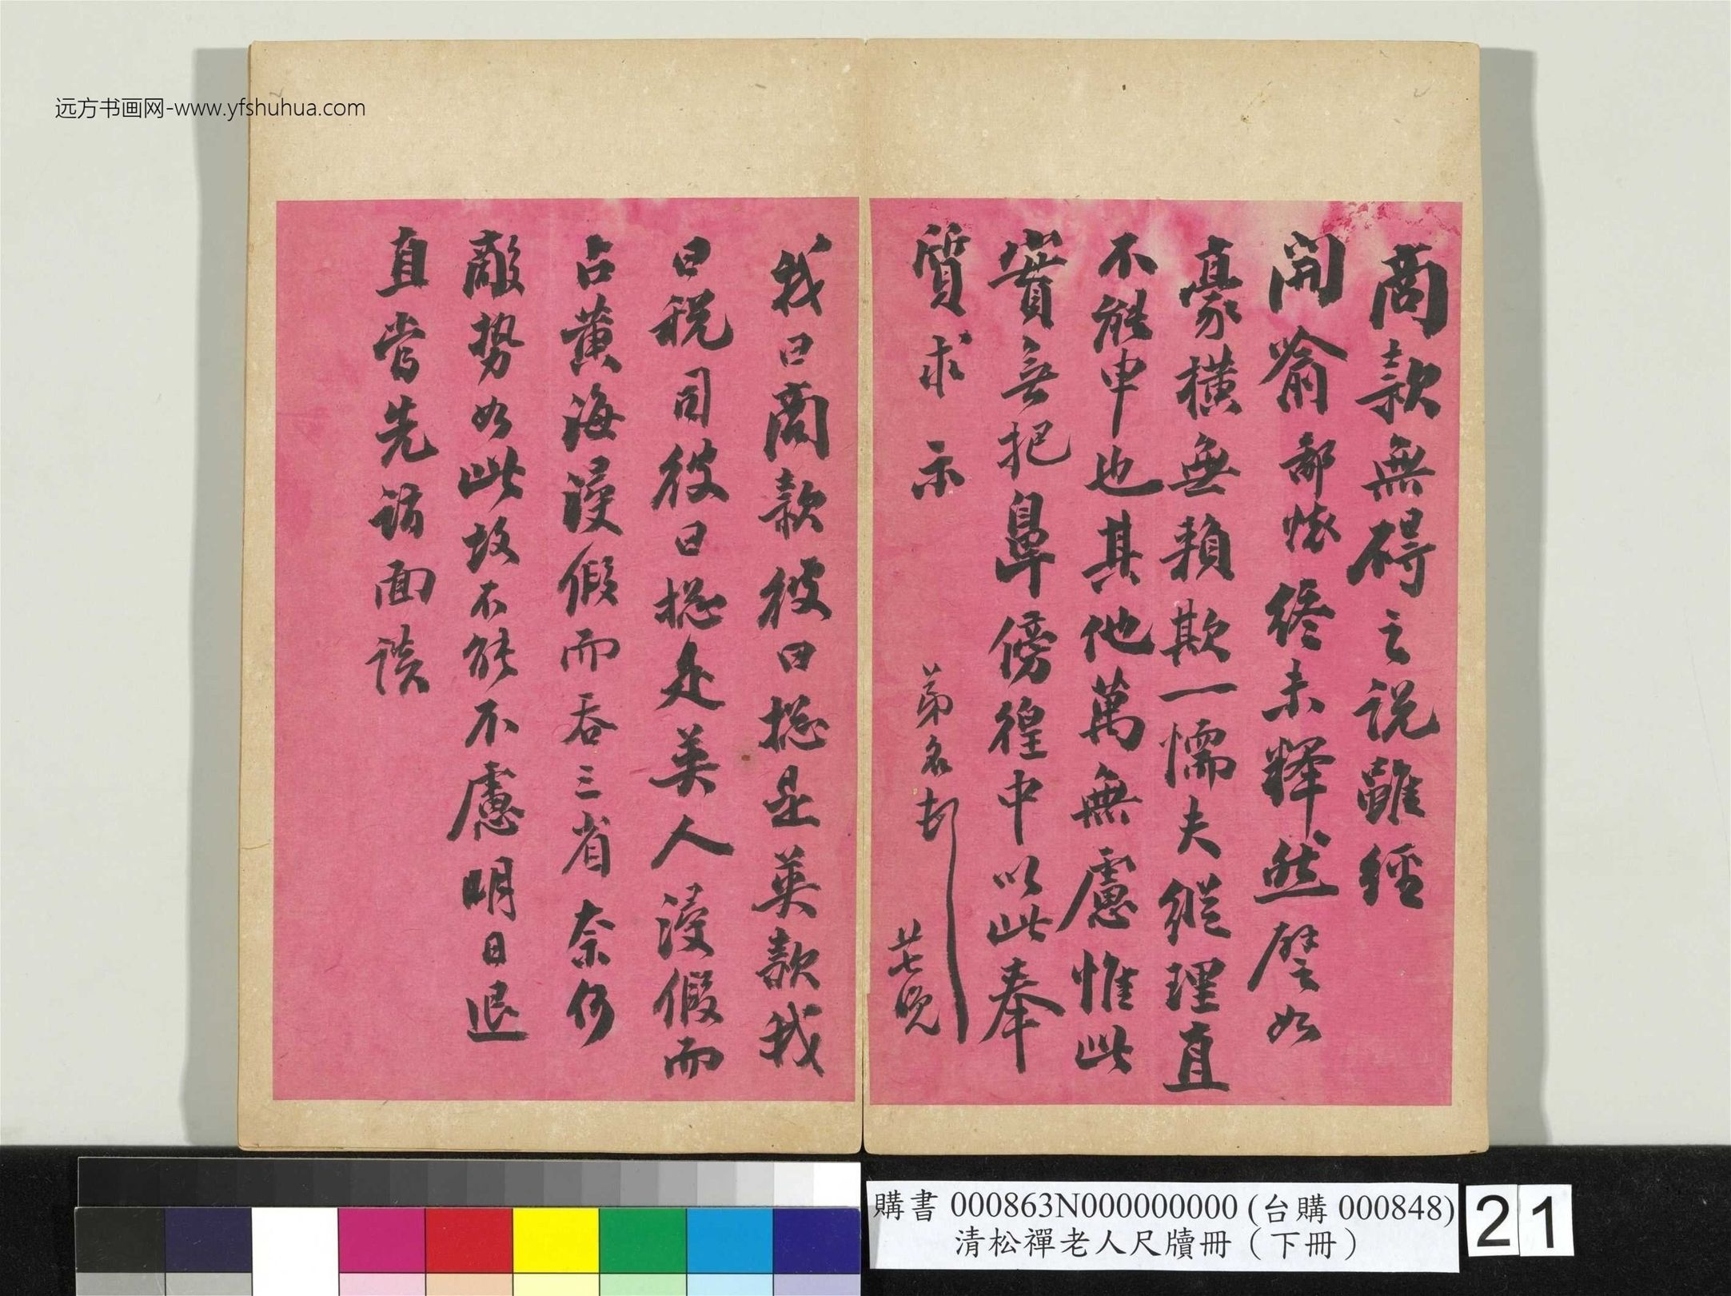 远方书画网-www.yfshuhua.com
商款無碍之説雖經
開諭鄙懷終未釋然譬如
豪橫無賴欺一懦夫縱理直
不能申也其他萬無慮惟此
實無把鼻傍徨中以此奉
質求示
弟名 頓 廿七晚
我曰商款彼曰揔是英款我
曰税司彼曰揔是英人浸假而
占黄海浸假而吞三省奈何
敵势如此故不能不慮明日退
直當先詣面談
購書 000863N000000000 (台購 000848)
清松禪老人尺牘冊（下冊）
21